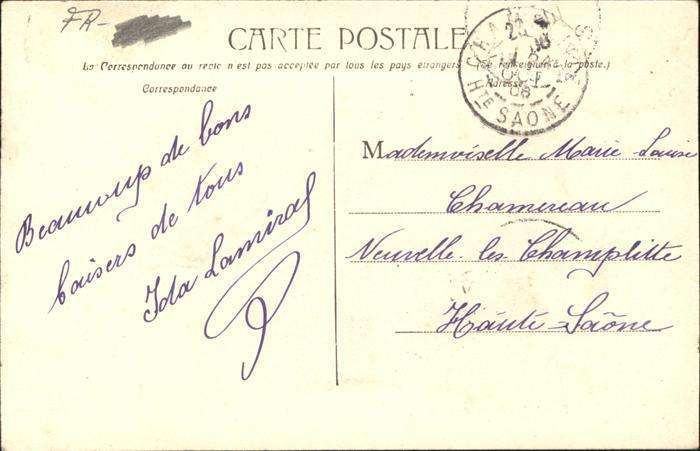 FR-
CARTE POSTALE
La Correspondance au recto n'est pas acceptée par tous les pays étrangers (Se renseigner à la poste.)
Correspondance
Adresse
Hte SAONE
08
Beaucoup de bons
baisers de tous
Ida Lamiral
Mademoiselle Marie Louise
Chamereau
Neuvelle les Champlitte
Haute-Saône